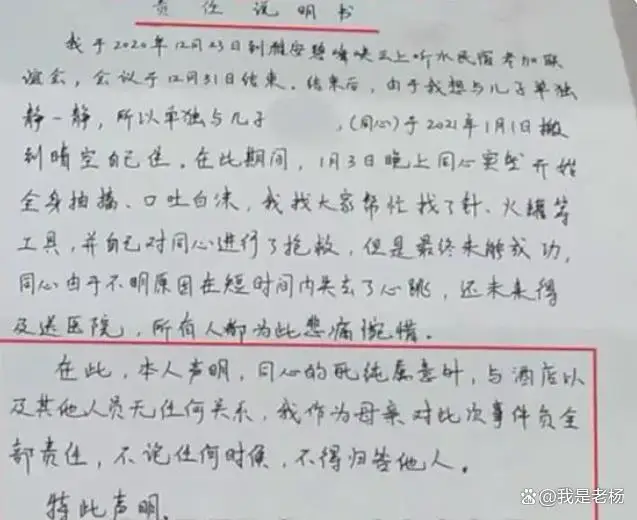 责任说明书
我于2020年12月23日到雅安碧峰峡云上听水民宿参加联
谊会，会议于12月31日结束。结束后，由于我想与儿子单独
静一静，所以单独与儿子 ，(同心)于2021年1月1日搬
到晴空自己住。在此期间，1月3日晚上同心突然开始
全身抽搐、口吐白沫，我找大家帮忙找了针、火罐等
工具，并自己对同心进行了抢救，但是最终未能成功，
同心由于不明原因在短时间内失去了心跳，还未来得
及送医院，所有人都为此悲痛惋惜。
在此，本人声明，同心的死纯属意外，与酒店以
及其他人员无任何关系，我作为母亲对此次事件负全
部责任，不论任何时候，不得归咎他人。
特此声明.
@我是老杨